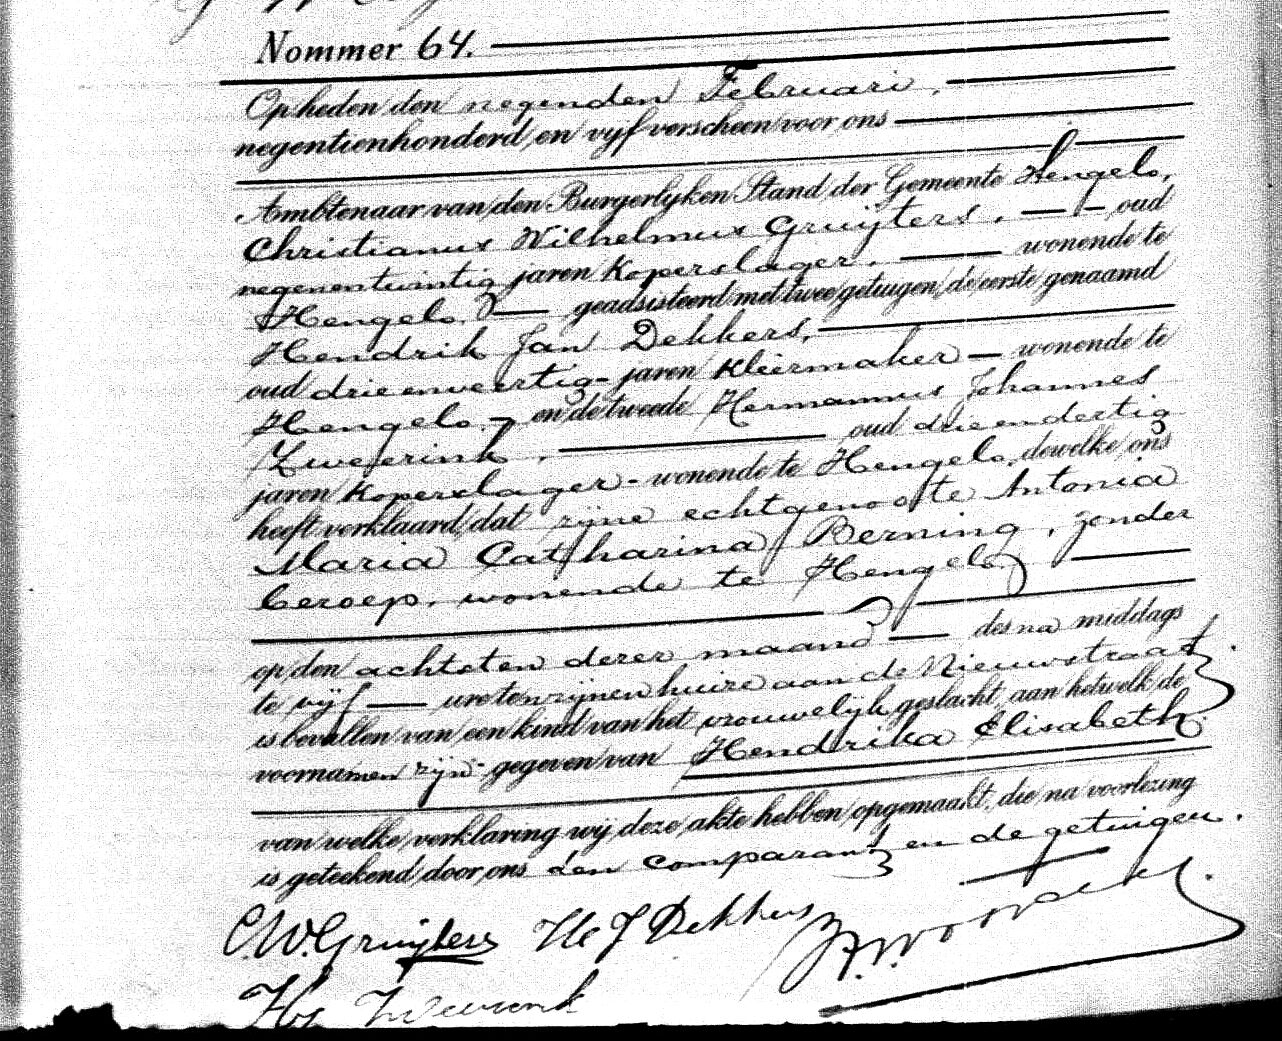 Nommer 64.
Op heden den negenden Februari,
negentienhonderd en vijf verscheen voor ons
Ambtenaar van den Burgerlijken Stand der Gemeente Hengelo,
Christianus Wilhelmus Gruijters, oud
negenentwintig jaren Koperslager, wonende te
Hengelo, geadsisteerd met twee getuigen, de eerste genaamd
Hendrik Jan Dekkers,
oud drieenveertig jaren Kleermaker wonende te
Hengelo, en de tweede Hermannus Johannes
Zweferink, oud drieendertig
jaren Koperslager wonende te Hengelo, dewelke ons
heeft verklaard, dat zijne echtgenoote Antonia
Maria Catharina Berning, zonder
beroep, wonende te Hengelo,
op den achtsten dezer maand des na middags
te vijf ure ten zijnen huize aan de Nieuwstraat
is bevallen van een kind van het vrouwelijk geslacht, aan hetwelk de
voornamen zijn gegeven van Hendrika Elisabeth
van welke verklaring wij deze akte hebben opgemaakt, die na voorlezing
is geteekend door ons den comparant en de getuigen.
C.W. Gruijters H J Dekkers